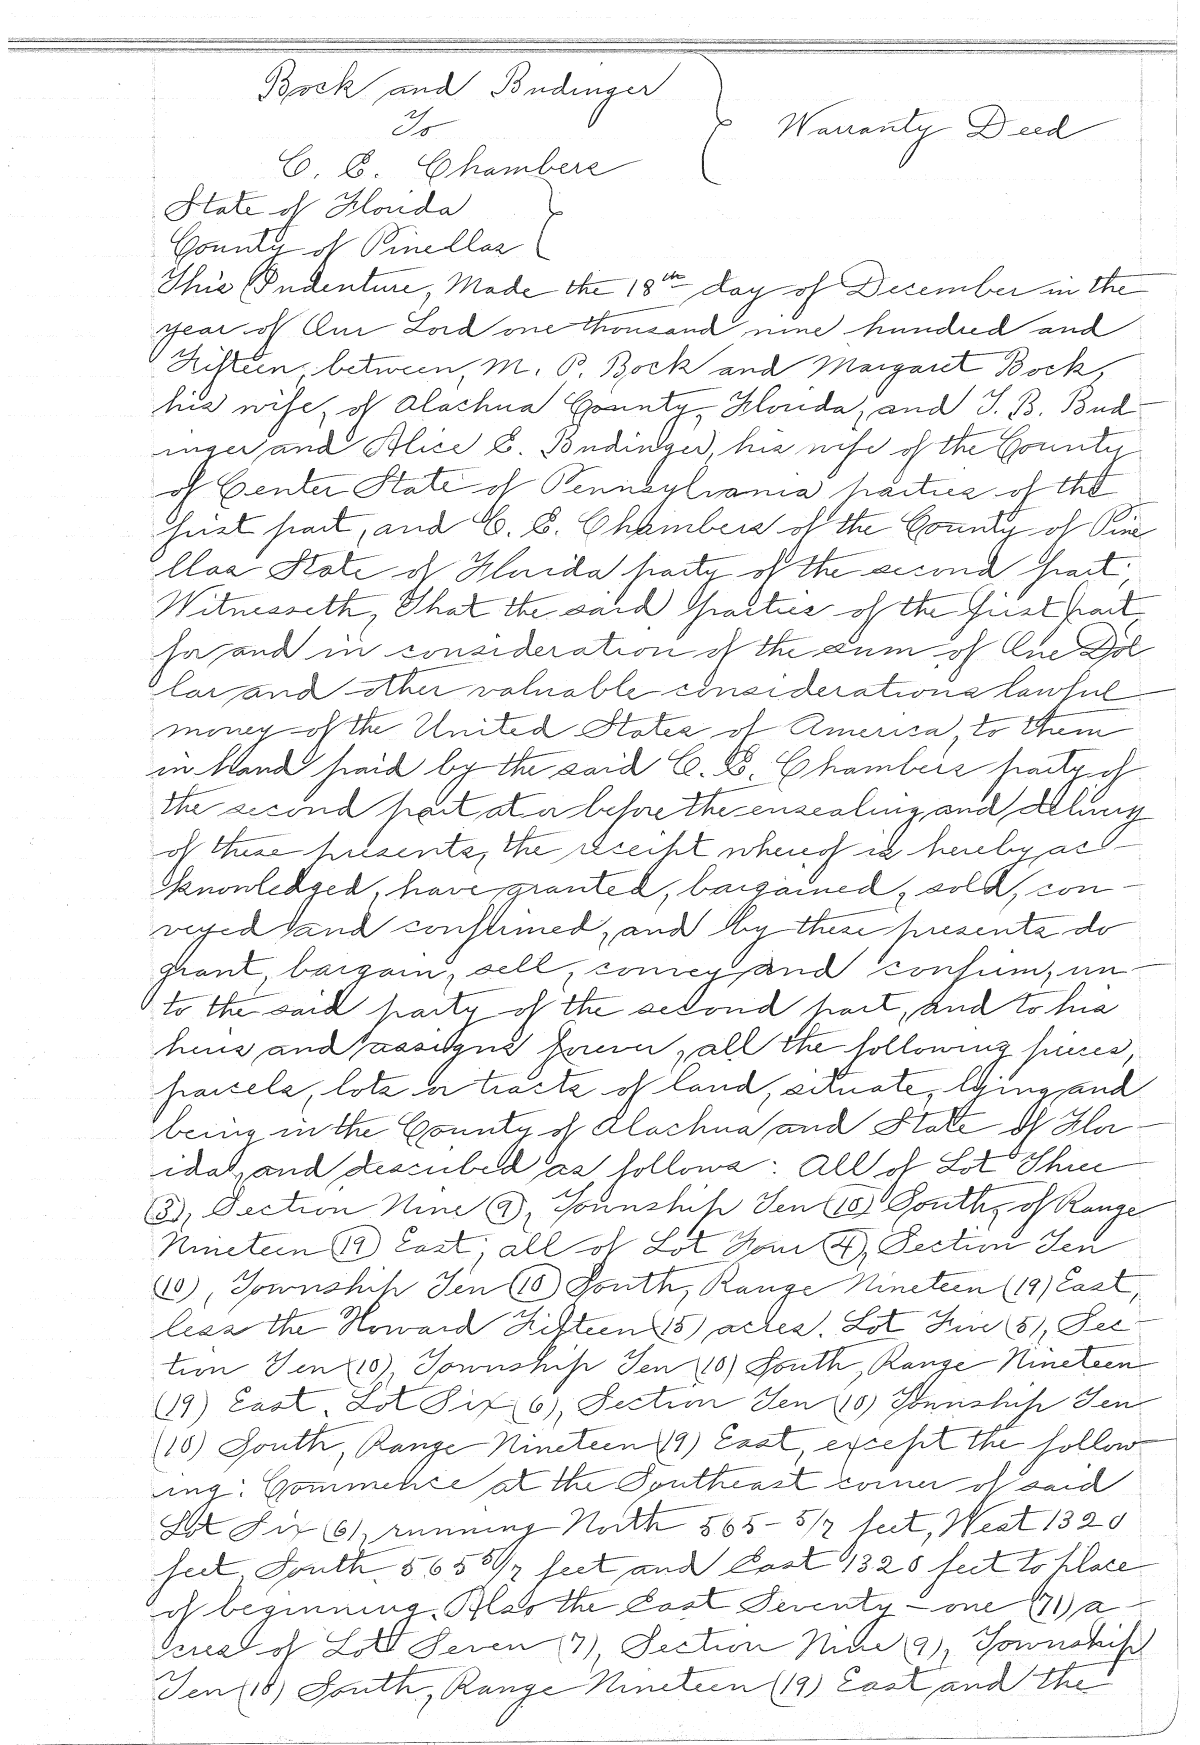 Bock and Budinger
To
Warranty Deed
C. E. Chambers
State of Florida
County of Pinellas
This Indenture, Made the 18th day of December in the
year of Our Lord one thousand nine hundred and
Fifteen, between, M. P. Bock and Margaret Bock,
his wife, of Alachua County, Florida, and T. B. Bud-
inger and Alice E. Budinger, his wife of the County
of Center State of Pennsylvania parties of the
first part, and C. E. Chambers of the County of Pine
llas State of Florida party of the second part;
Witnesseth, That the said parties of the first part,
for and in consideration of the sum of One Dol
lar and other valuable considerations lawful
money of the United States of America, to them
in hand paid by the said C. E. Chambers party of
the second part at or before the ensealing and delivery
of these presents, the receipt whereof is hereby ac-
knowledged, have granted, bargained, sold, con-
veyed and confirmed, and by these presents do
grant, bargain, sell, convey and confirm, un-
to the said party of the second part, and to his
heirs and assigns forever, all the following pieces,
parcels, lots or tracts of land, situate, lying and
being in the County of Alachua and State of Flor-
ida, and described as follows: All of Lot Three
(3), Section Nine (9), Township Ten (10) South, of Range
Nineteen (19) East; all of Lot Four (4), Section Ten
(10), Township Ten (10) South, Range Nineteen (19) East,
less the Howard Fifteen (15) acres. Lot Five (5), Sec-
tion Ten (10), Township Ten (10) South, Range Nineteen
(19) East. Lot Six (6), Section Ten (10) Township Ten
(10) South, Range Nineteen (19) East, except the follow-
ing: Commence at the Southeast corner of said
Lot Six (6), running North 565-5/7 feet, West 1320
feet, South 565 5/7 feet and East 1320 feet to place
of beginning. Also the East Seventy-one (71) a-
cres of Lot Seven (7), Section Nine (9), Township
Ten (10) South, Range Nineteen (19) East and the